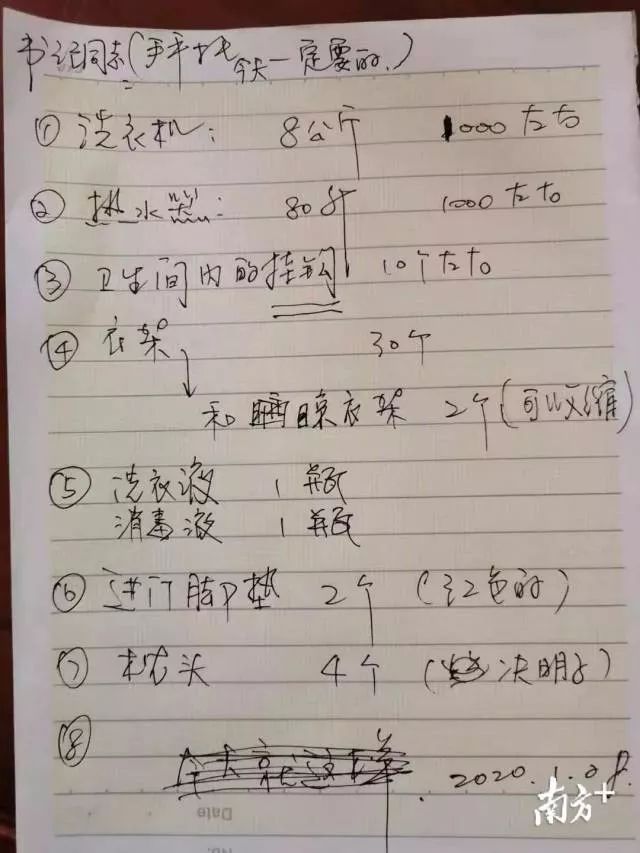 书记同志( 今天一定要的.)
① 洗衣机: 8公斤 1000左右
② 热水器: 80升 1000左右
③ 卫生间内的挂钩 10个左右
④ 衣架 30个
和晒晾衣架 2个(可收缩)
⑤ 洗衣液 1瓶
消毒液 1瓶
⑥ 进门脚垫 2个 (红色的)
⑦ 枕头 4个 (决明子)
⑧
2020.1.08.
Date
No.
南方+